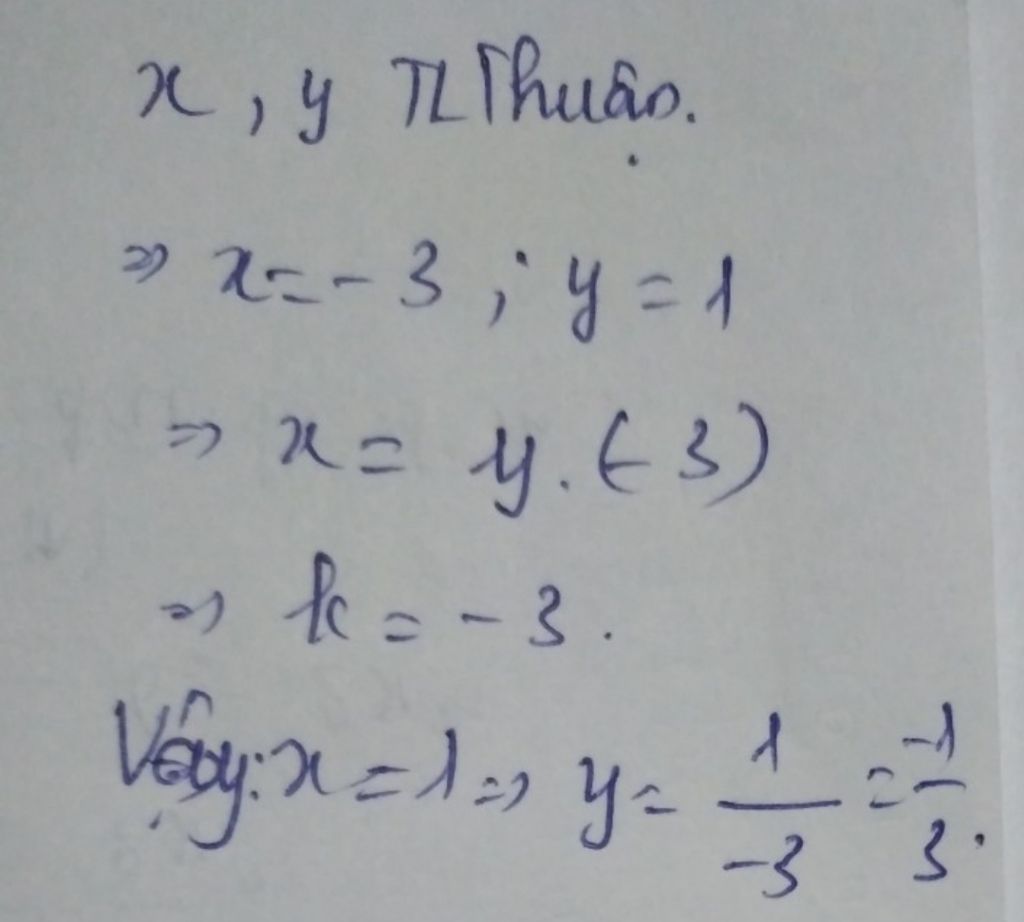 x, y TL Thuận.
=> x = - 3 ; y = 1
=> x = y. (- 3)
=> k = - 3.
Vậy: x = 1 => y = 1/-3 = -1/3.